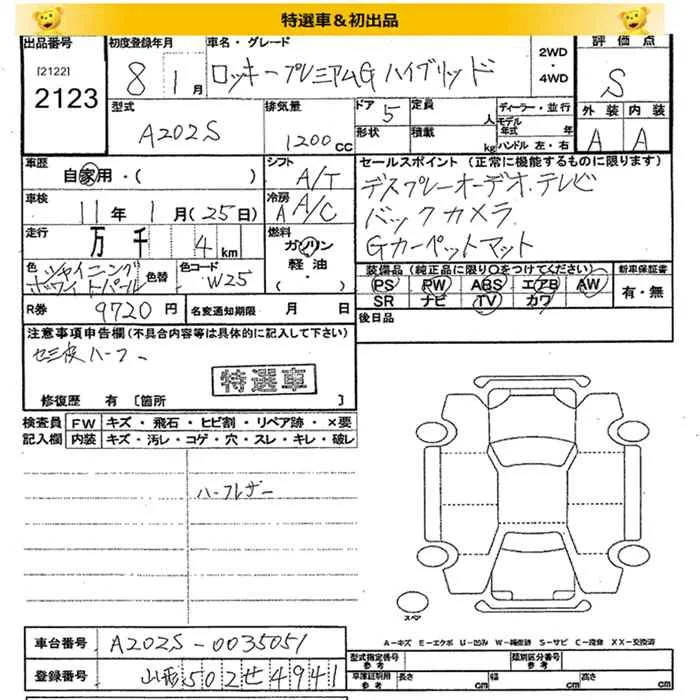 特選車＆初出品
出品番号 初度登録年月 車名・グレード 2WD・4WD 評価点
[2122]
2123
8 1月 ロッキープレミアムG ハイブリッド S
型式 排気量 ドア 定員 ディーラー・並行 外装 内装
A202S 1200cc 5 人 モデル年式 年 A A
形状 積載 kg ハンドル 左・右
車歴 シフト セールスポイント (正常に機能するものに限ります)
自家用・( ) A/T デスプレーオーデオ、テレビ
車検 冷房
11年1月(25日) A A/C バックカメラ
走行 燃料 Gカーペットマット
万 千 4km ガソリン
軽油
色 色替 色コード
シャイニングホワイトパール W25
装備品 (純正品に限り○をつけてください) 新車保証書
PS PW ABS エアB AW 有・無
SR ナビ TV カワ
R券 9720円 名変通知期限 月 日 後日品
注意事項申告欄(不具合内容等は具体的に記入して下さい)
特選車
修復歴 有 [箇所 ]
検査員 FW キズ・飛石・ヒビ割・リペア跡・×要
記入欄 内装 キズ・汚レ・コゲ・穴・スレ・キレ・破レ
ハーフレザー
スペア
A-キズ E-エクボ U-凹み W-補修跡 S-サビ C-腐食 XX-交換済
車台番号 A202S-0035051 型式指定番号 参考 類別区分番号 参考
登録番号 山形502せ4941 車庫証明用 参考 長さ cm 幅 cm 高さ cm